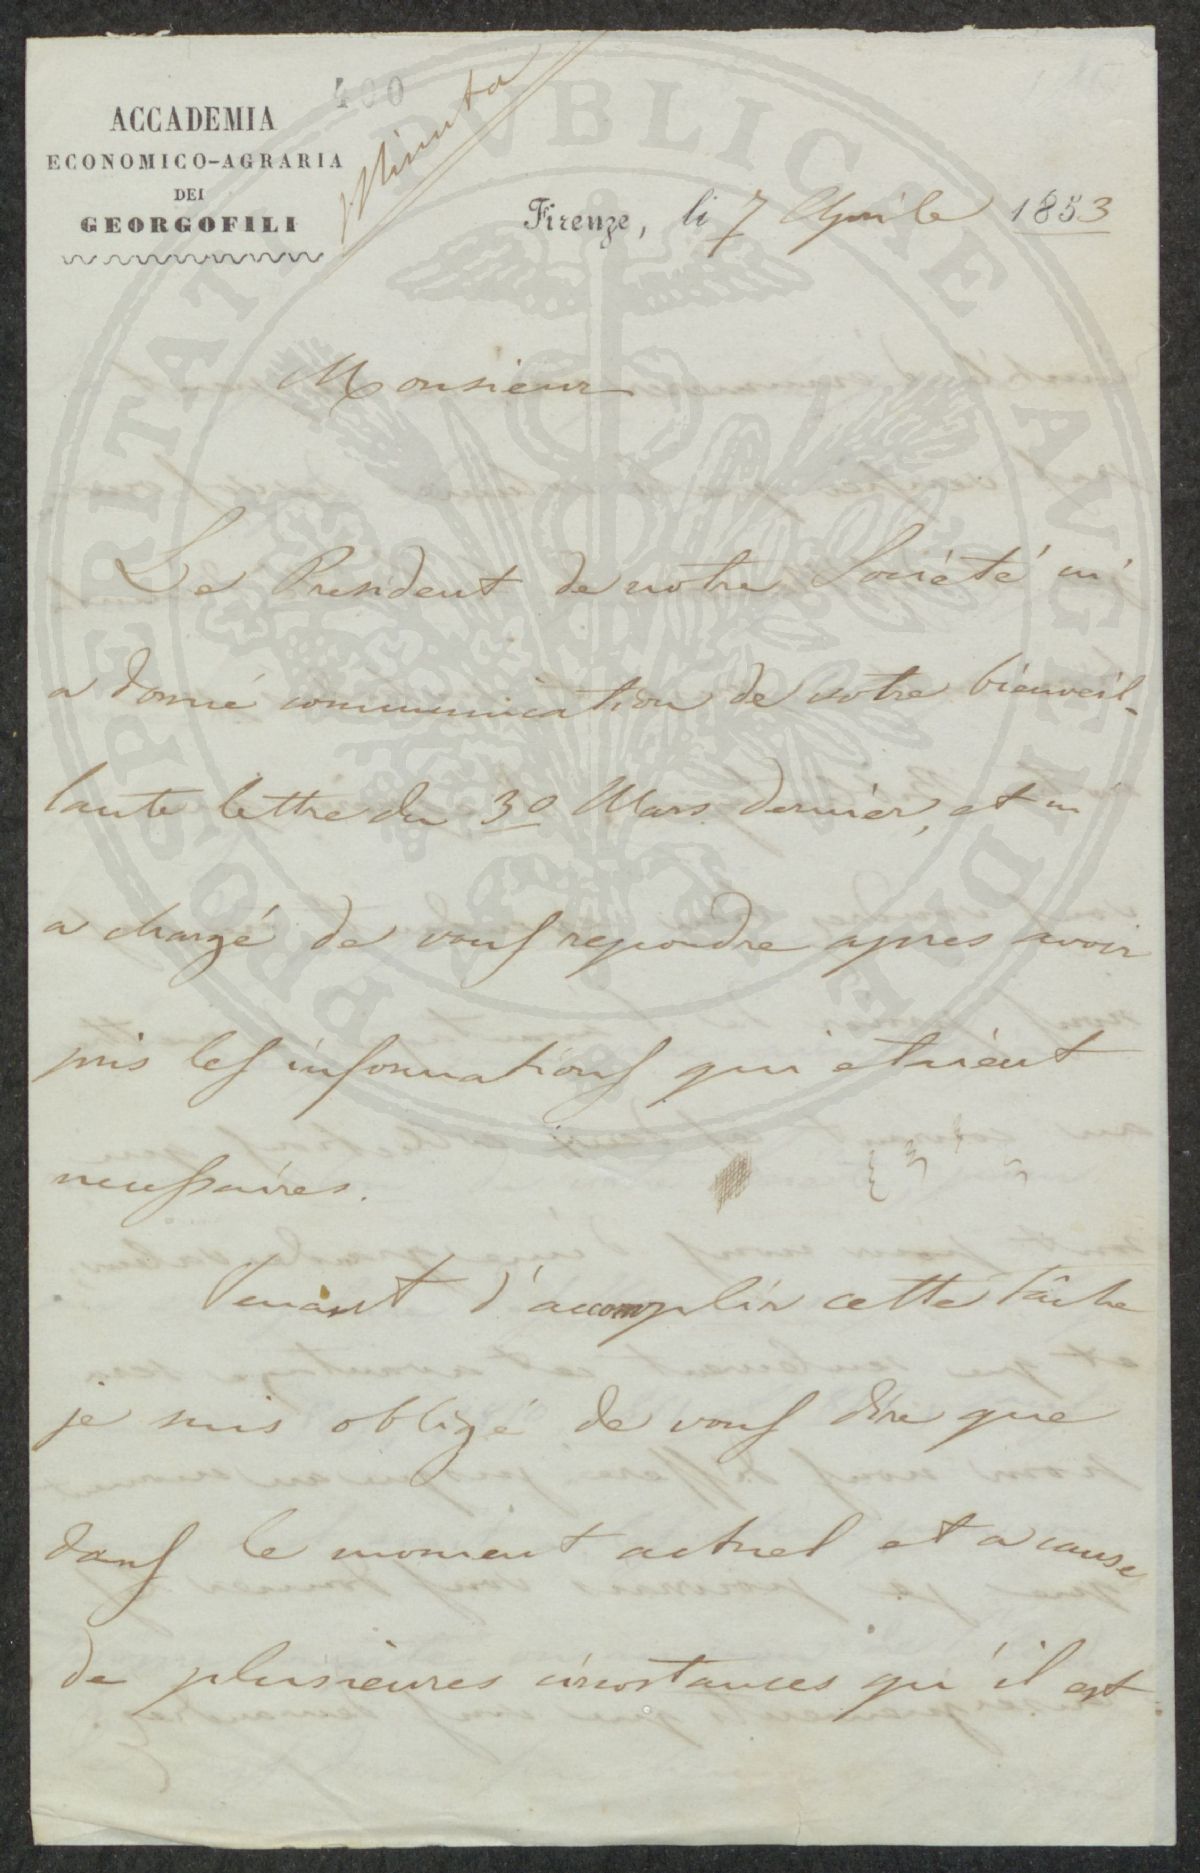 400
Minuta
ACCADEMIA
ECONOMICO-AGRARIA
DEI
GEORGOFILI
Firenze, li 7 Aprile 1853
PROSPERITATI PVBLICAE AVGENDAE
Monsieur
Le President de notre Société m'
a donné communication de votre bienveil-
lante lettre du 30 Mars dernier, et m
a chargé de vous repondre apres avoir
pris les informations qui etaient
necessaires.
Venant d'accomplir cette tâche
je suis obligé de vous dire que
dans le moment actuel et a cause
de plusieures circostances qu'il est